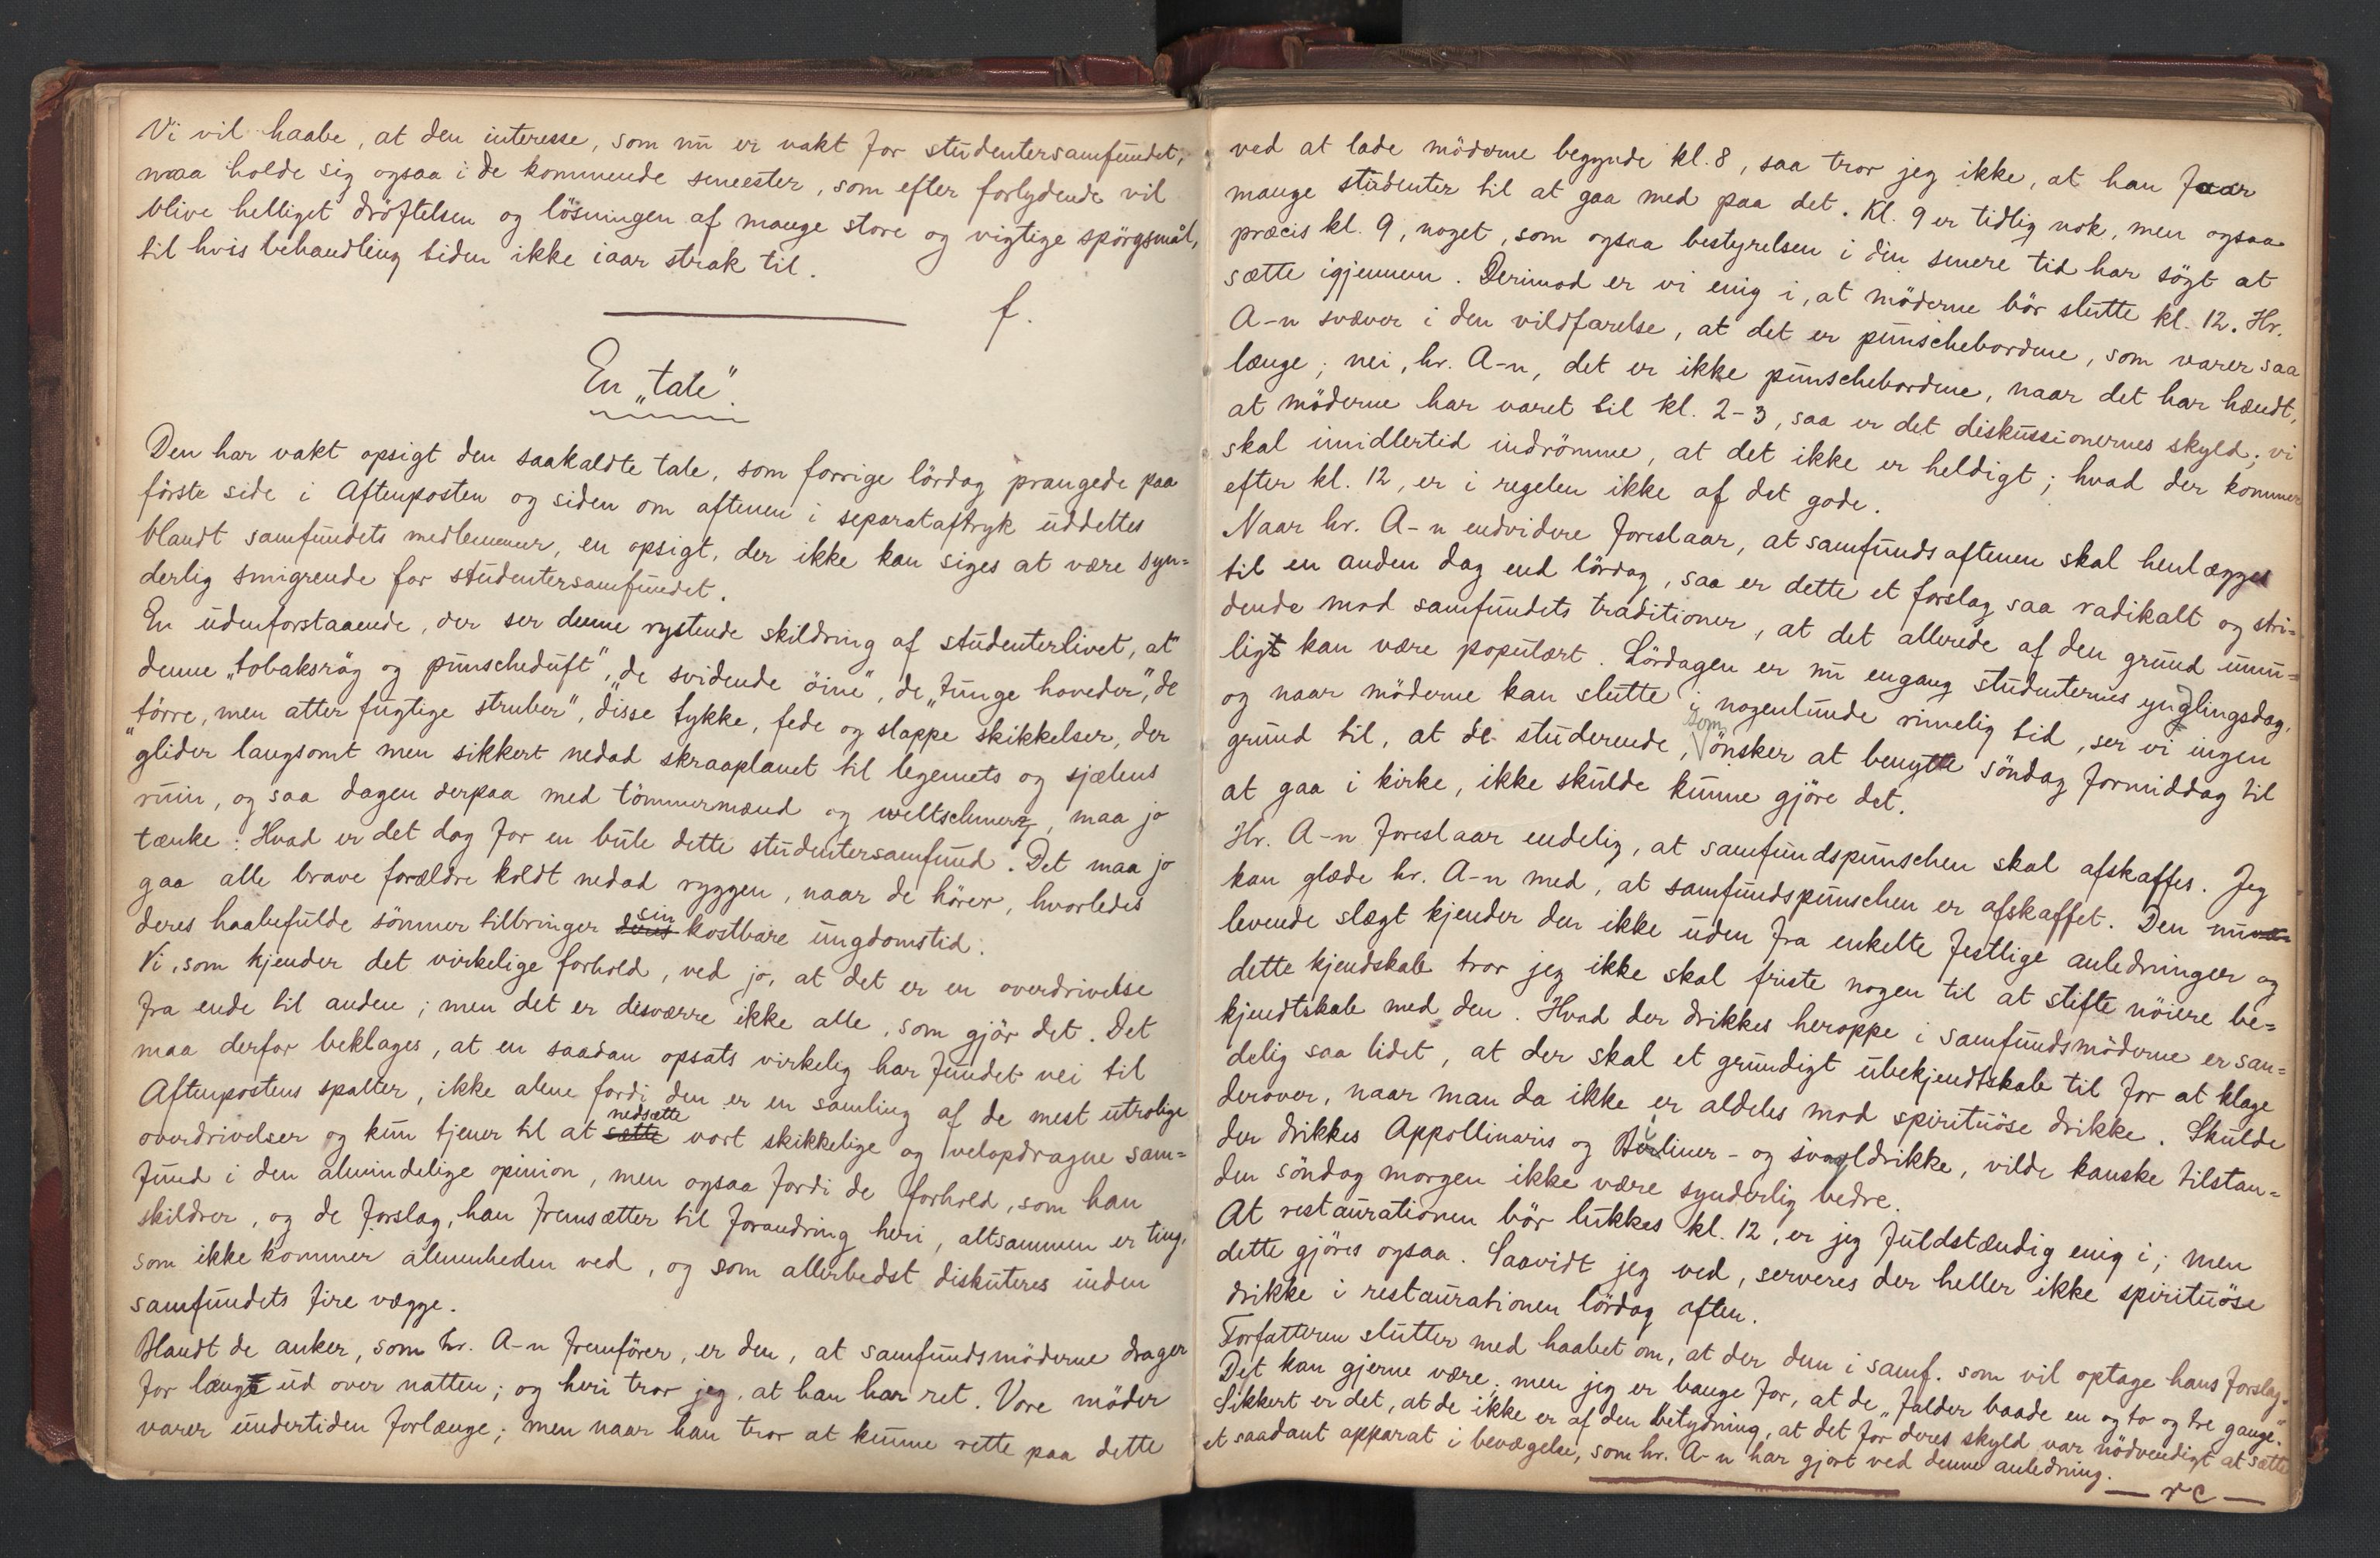 Vi vil haabe, at den interesse, som nu er vakt for studentersamfundet,
maa holde sig ogsaa i de kommende semester, som efter forlydende vil
blive helliget dröftelsen og lösningen af mange store og vigtige spörgsmål,
til hvis behandling tiden ikke iaar strak til.
f.
En „tale".
Den har vakt opsigt den saakaldte tale, som forrige lördag prangede paa
förste side i Aftenposten og siden om aftenen i separataftryk uddeltes
blandt samfundets medlemmer, en opsigt, der ikke kan siges at være syn=
derlig smigrende for studentersamfundet.
En udenforstaaende, der ser denne rystende skildring af studenterlivet, at
denne „tobaksrög og punscheduft", „de svidende öine", de „tunge hoveder", „de
törre, men atter fugtige struber", disse tykke, fede og slappe skikkelser, der
"glider langsomt men sikkert nedad skraaplanet til legemets og sjælens
ruin, og saa dagen derpaa med tömmermænd og weltschmerz, maa jo
tænke: Hvad er det dog for en bule dette studentersamfund. Det maa jo
gaa alle brave forældre koldt nedad ryggen, naar de hörer, hvorledes
deres haabefulde sönner tilbringer deres sin kostbare ungdomstid.
Vi, som kjender det virkelige forhold, ved jo, at det er en overdrivelse
fra ende til anden; men det er desværre ikke alle, som gjör det. Det
maa derfor beklages, at en saadan opsats virkelig har fundet vei til
Aftenpostens spalter, ikke alene fordi den er en samling af de mest utrolige
overdrivelser og kun tjener til at sætte nedsætte vort skikkelige og velopdragne sam=
fund i den almindelige opinion, men ogsaa fordi de forhold, som han
skildrer, og de forslag, han fremsætter til forandring heri, altsammen er ting,
som ikke kommer almenheden ved, og som allerbedst diskuteres inden
samfundets fire vægge.
Blandt de anker, som hr. A-n fremförer, er den, at samfundsmöderne drager
for langt ud over natten; og heri tror jeg, at han har ret. Vore möder
varer undertiden forlænge; men naar han tror at kunne rette paa dette
ved at lade möderne begynde kl. 8, saa tror jeg ikke, at han faar
mange studenter til at gaa med paa det. Kl. 9 er tidlig nok, men ogsaa
præcis kl. 9, noget, som ogsaa bestyrelsen i den senere tid har sögt at
sætte igjennem. Derimod er vi enig i, at möderne bör slutte kl. 12. Hr.
A-n svæver i den vildfarelse, at det er punschebordene, som varer saa
længe; nei, hr. A-n, det er ikke punschebordene, naar det har hændt,
at möderne har varet til kl. 2-3, saa er det diskussionernes skyld; vi
skal imidlertid indrömme, at det ikke er heldigt; hvad der kommer
efter kl. 12, er i regelen ikke af det gode.
Naar hr. A-n endvidere foreslaar, at samfundsaftenen skal henlægges
til en anden dag end lördag, saa er dette et forslag saa radikalt og stri=
dende mod samfundets traditioner, at det allerede af den grund umu=
ligt kan være populært. Lördagen er nu engang studenternes ynglingsdag,
og naar möderne kan slutte i nogenlunde rimelig tid, ser vi ingen
grund til, at de studerende, som önsker at benytte söndag formiddag til
at gaa i kirke, ikke skulde kunne gjöre det.
Hr. A-n foreslaar endelig, at samfundspunschen skal afskaffes. Jeg
kan glæde hr. A-n med, at samfundspunschen er afskaffet. Den nu
levende slægt kjender den ikke uden fra enkelte festlige anledninger og
dette kjendskab tror jeg ikke skal friste nogen til at stifte nöiere be=
kjendtskab med den. Hvad der drikkes heroppe i samfundsmöderne er san=
delig saa lidet, at der skal et grundigt ubekjendtskab til for at klage
derover, naar man da ikke er aldeles mod spirituöse drikke. Skulde
der drikkes Appollinaris og Biliner- og svovldrikke, vilde kanske tilstan=
den söndag morgen ikke være synderlig bedre.
At restaurationen bör lukkes kl. 12, er jeg fuldstændig enig i; men
dette gjöres ogsaa. Saavidt jeg ved, serveres der heller ikke spirituöse
drikke i restaurationen lördag aften.
Forfatteren slutter med haabet om, at der den i samf. som vil optage hans forslag.
Det kan gjerne være; men jeg er bange for, at de „falder baade en og to og tre gange".
Sikkert er det, at de ikke er af den betydning, at det for deres skyld var nödvendigt at sætte
et saadant apparat i bevægelse, som hr. A-n har gjort ved denne anledning.
— rc —